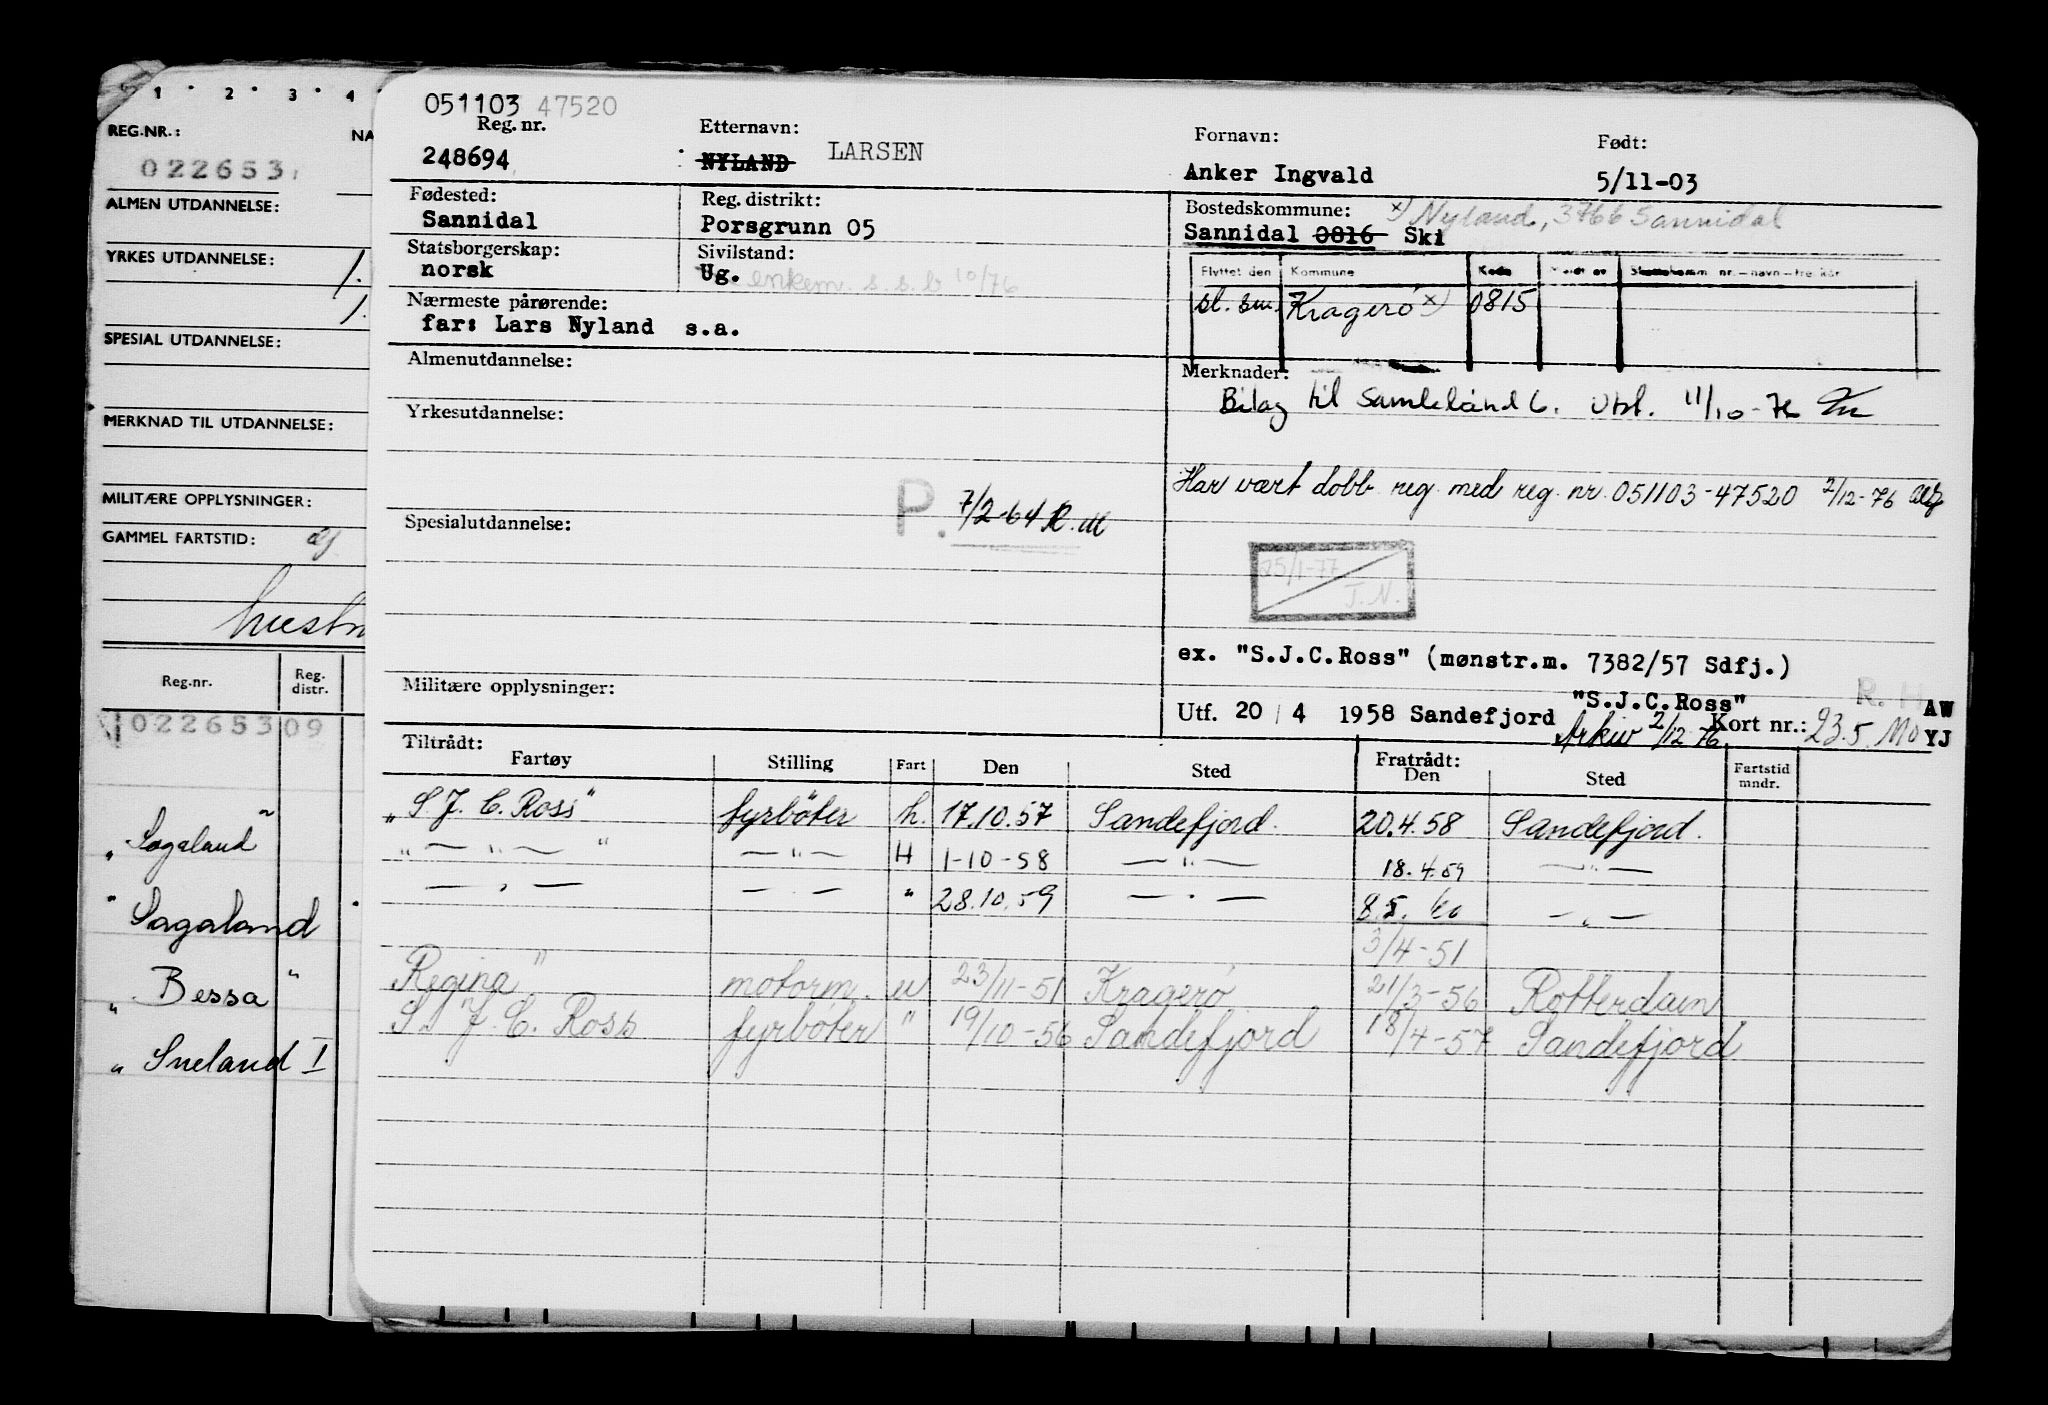 1 · 2 · 3 · 4
REG.NR.:
NA
022653
ALMEN UTDANNELSE:
YRKES UTDANNELSE:
1.
1.
SPESIAL UTDANNELSE:
MERKNAD TIL UTDANNELSE:
MILITÆRE OPPLYSNINGER:
GAMMEL FARTSTID:
Reg.nr.
Reg. distr.
022653 09
"Sagaland"
"Sagaland
"Bessa"
"Sneland I
051103 47520
Reg. nr. Etternavn: Fornavn: Født:
248694 NYLAND LARSEN Anker Ingvald 5/11-03
Fødested: Reg. distrikt: Bostedskommune: x) Nyland, 3766 Sannidal
Sannidal Porsgrunn 05 Sannidal 0816 Ski
Statsborgerskap: Sivilstand:
norsk Ug. enkem. s.s.b 10/76
Flyttet den Kommune Kode
sl. sm. Kragerø x) 0815
Nærmeste pårørende:
far: Lars Nyland s.a.
Almenutdannelse:
Merknader:
Bilag til Utst. 11/10-76
Yrkesutdannelse:
Har vært dobb. reg. med reg. nr. 051103-47520 2/12-76
P. 7/2-64 R. M
Spesialutdannelse:
25/1-77
J.N.
ex. "S.J.C.Ross" (mønstr.m. 7382/57 Sdfj.)
Militære opplysninger:
"S.J.C.Ross" R. H AW
Utf. 20 / 4 1958 Sandefjord Arkiv 2/12 76 Kort nr.: 23.5. Mo YJ
Tiltrådt: Fratrådt:
Fartøy Stilling Fart Den Sted Den Sted Fartstid mndr.
"S J. C. Ross" fyrbøter h. 17.10.57 Sandefjord. 20.4.58 Sandefjord.
" — " — " — " — H 1-10-58 — " — 18.4.59 — " —
— " — — " — " 28.10.59 — " — 8.5. 60 — " —
3/4-51
Regina" motorm. u 23/11-51 Kragerø 21/3-56 Rotterdam
S. J. C. Ross fyrbøter " 19/10-56 Sandefjord 18/4-57 Sandefjord